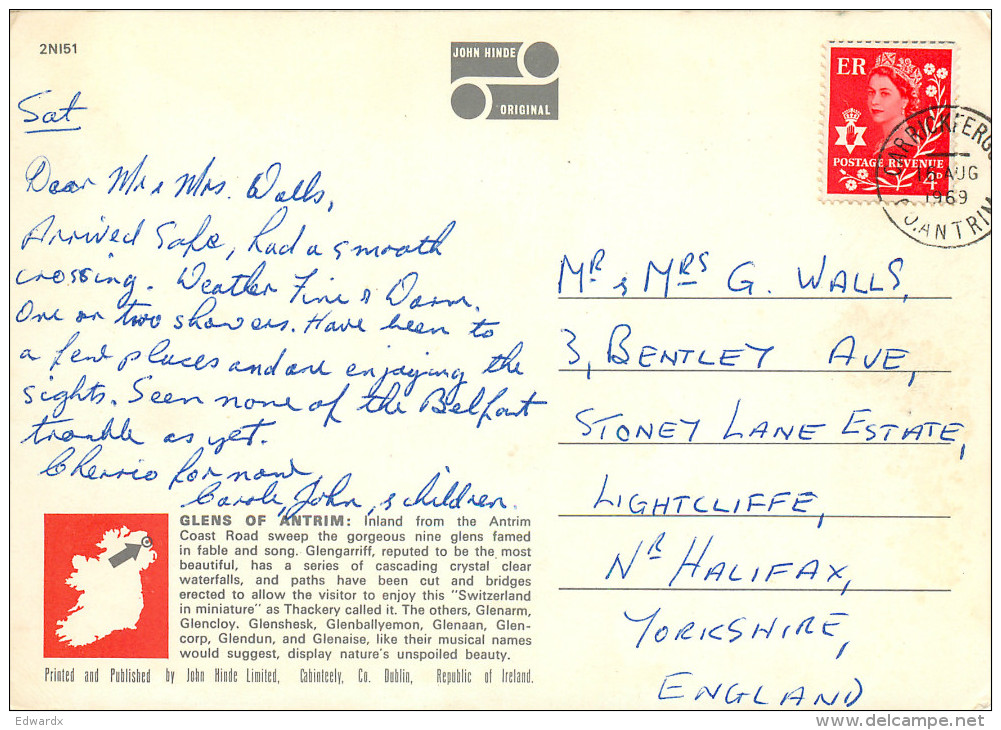 2NI51
JOHN HINDE
ORIGINAL
ER
POSTAGE REVENUE
4D
CARRICKFERGUS
16 AUG
1969
CO. ANTRIM
Sat
Dear Mr & Mrs. Walls,
Arrived Safe, had a smooth
crossing. Weather Fine & Warm.
One or two showers. Have been to
a few places and are enjoying the
sights. Seen none of the Belfast
trouble as yet.
Cherrio for now
Carole, John, & children.
MR & MRS G. WALLS,
3, BENTLEY AVE,
STONEY LANE ESTATE,
LIGHTCLIFFE,
NR HALIFAX,
YORKSHIRE,
ENGLAND
GLENS OF ANTRIM: Inland from the Antrim
Coast Road sweep the gorgeous nine glens famed
in fable and song. Glengarriff, reputed to be the most
beautiful, has a series of cascading crystal clear
waterfalls, and paths have been cut and bridges
erected to allow the visitor to enjoy this "Switzerland
in miniature" as Thackery called it. The others, Glenarm,
Glencloy. Glenshesk, Glenballyemon, Glenaan, Glen-
corp, Glendun, and Glenaise, like their musical names
would suggest, display nature's unspoiled beauty.
Printed and Published by John Hinde Limited, Cabinteely, Co. Dublin, Republic of Ireland.
Edwardx
www.delcampe.net